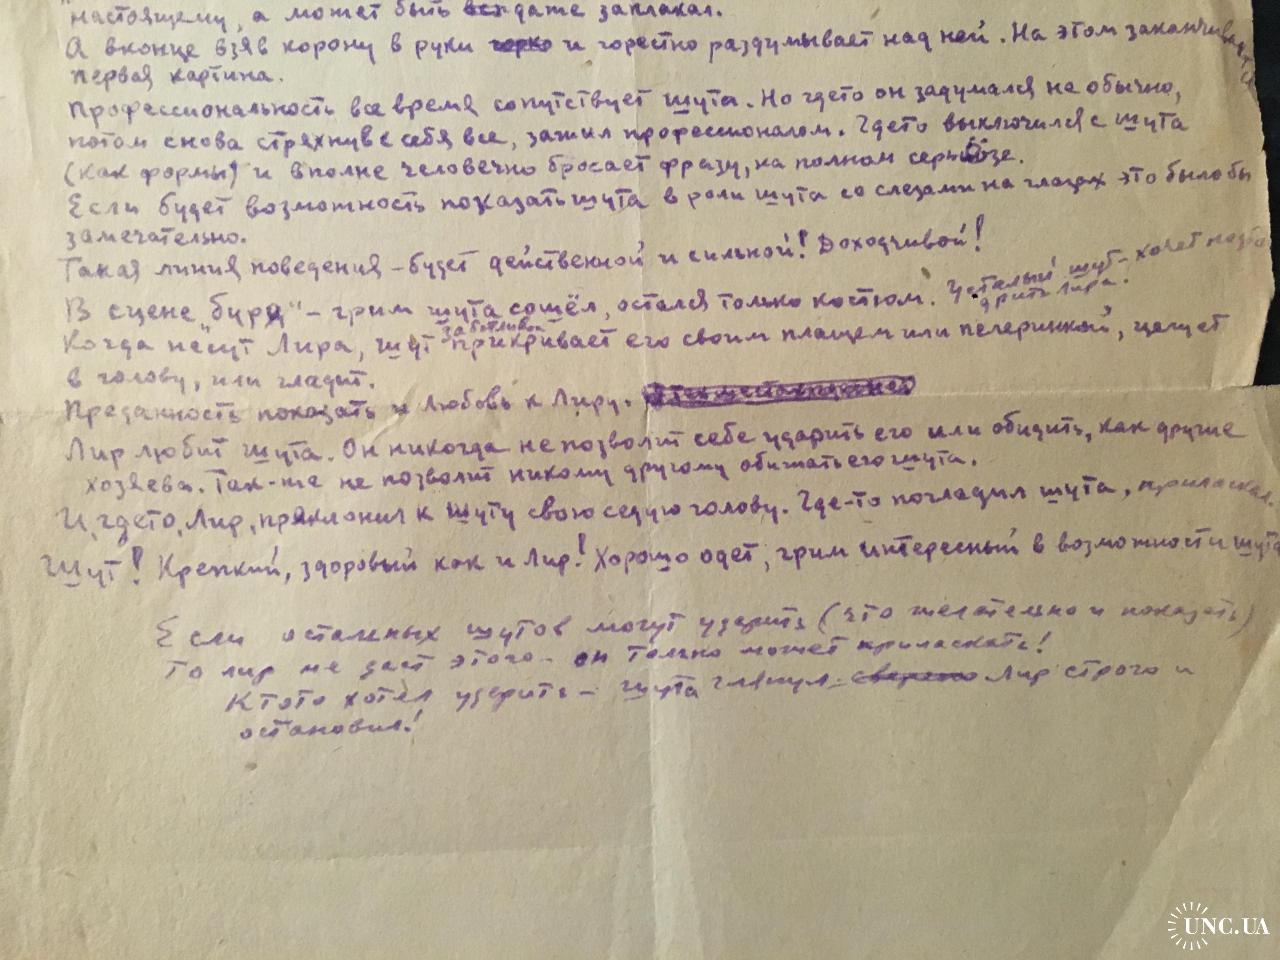 настоящему, а может быть даже заплакал.
А вконце взяв корону в руки горко и горестно раздумывает над ней. На этом заканчивается
первая картина.
Профессиональность все время сопутствует шута. Но гдето он задумался не обычно,
потом снова стряхнув с себя все, зажил профессионалом. Гдето выключился с шута
(как формы) и вполне человечно бросает фразу, на полном серьёзе.
Если будет возможность показать шута в роли шута со слезами на глазах это было бы
замечательно.
Такая линия поведения – будет действенной и сильной! Доходчивой!
В сцене "буря" – грим шута сошёл, остался только костюм. Усталый шут – хочет
Лира.
заботливой
Когда несут Лира, шут прикривает его своим плащем или пелеринкой, целует
в голову, или гладит.
Преданность показать и любовь к Лиру.
Лир любит шута. Он никогда не позволит себе ударить его или обидить, как другие
хозяева. Так-же не позволит никому другому обижать его шута.
И, гдето, Лир, приклонил к шуту свою седую голову. Где-то погладил шута, приласкал.
Шут! Крепкий, здоровый как и Лир! Хорошо одет, грим интересный в возможности шута
Если остальных шутов могут ударить (что желательно и показать)
То лир не даст этого – он только может приласкать!
Ктото хотел ударить – шута глянул Лир строго и
остановил!
UNC.UA